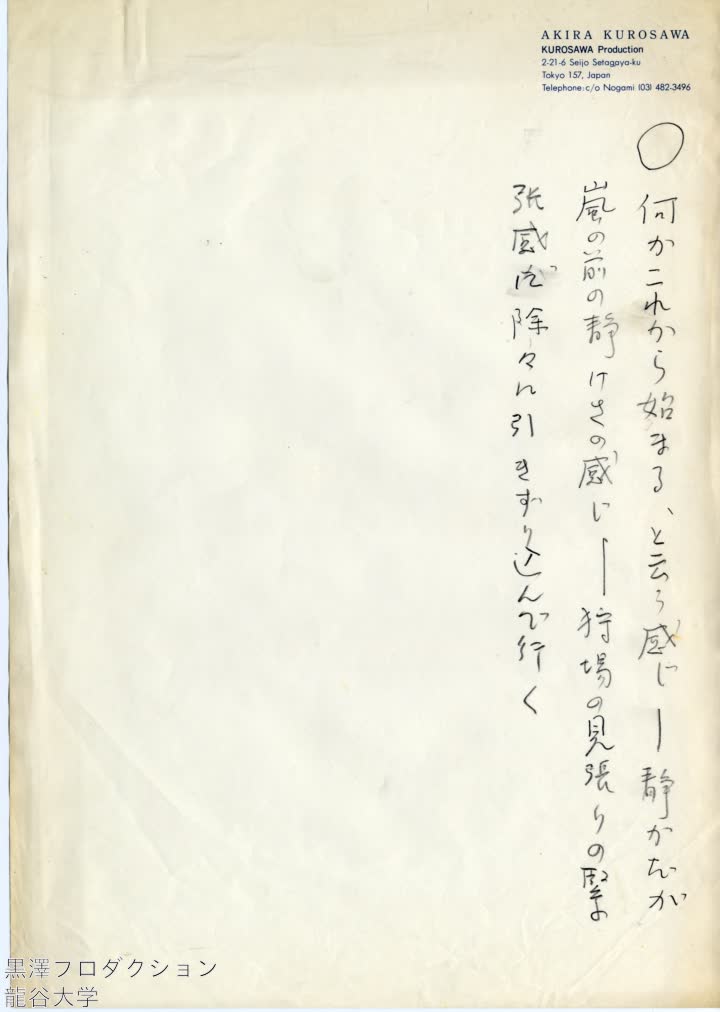 AKIRA KUROSAWA
KUROSAWA Production
2-21-6 Seijo Setagaya-ku
Tokyo 157, Japan
Telephone: c/o Nogami (03) 482-3496
○何かこれから始まる、と云う感じ―静かだが
嵐の前の静けさの感じ―狩場の見張りの緊
張感が除々に引きずり込んで行く
黒澤プロダクション
龍谷大学